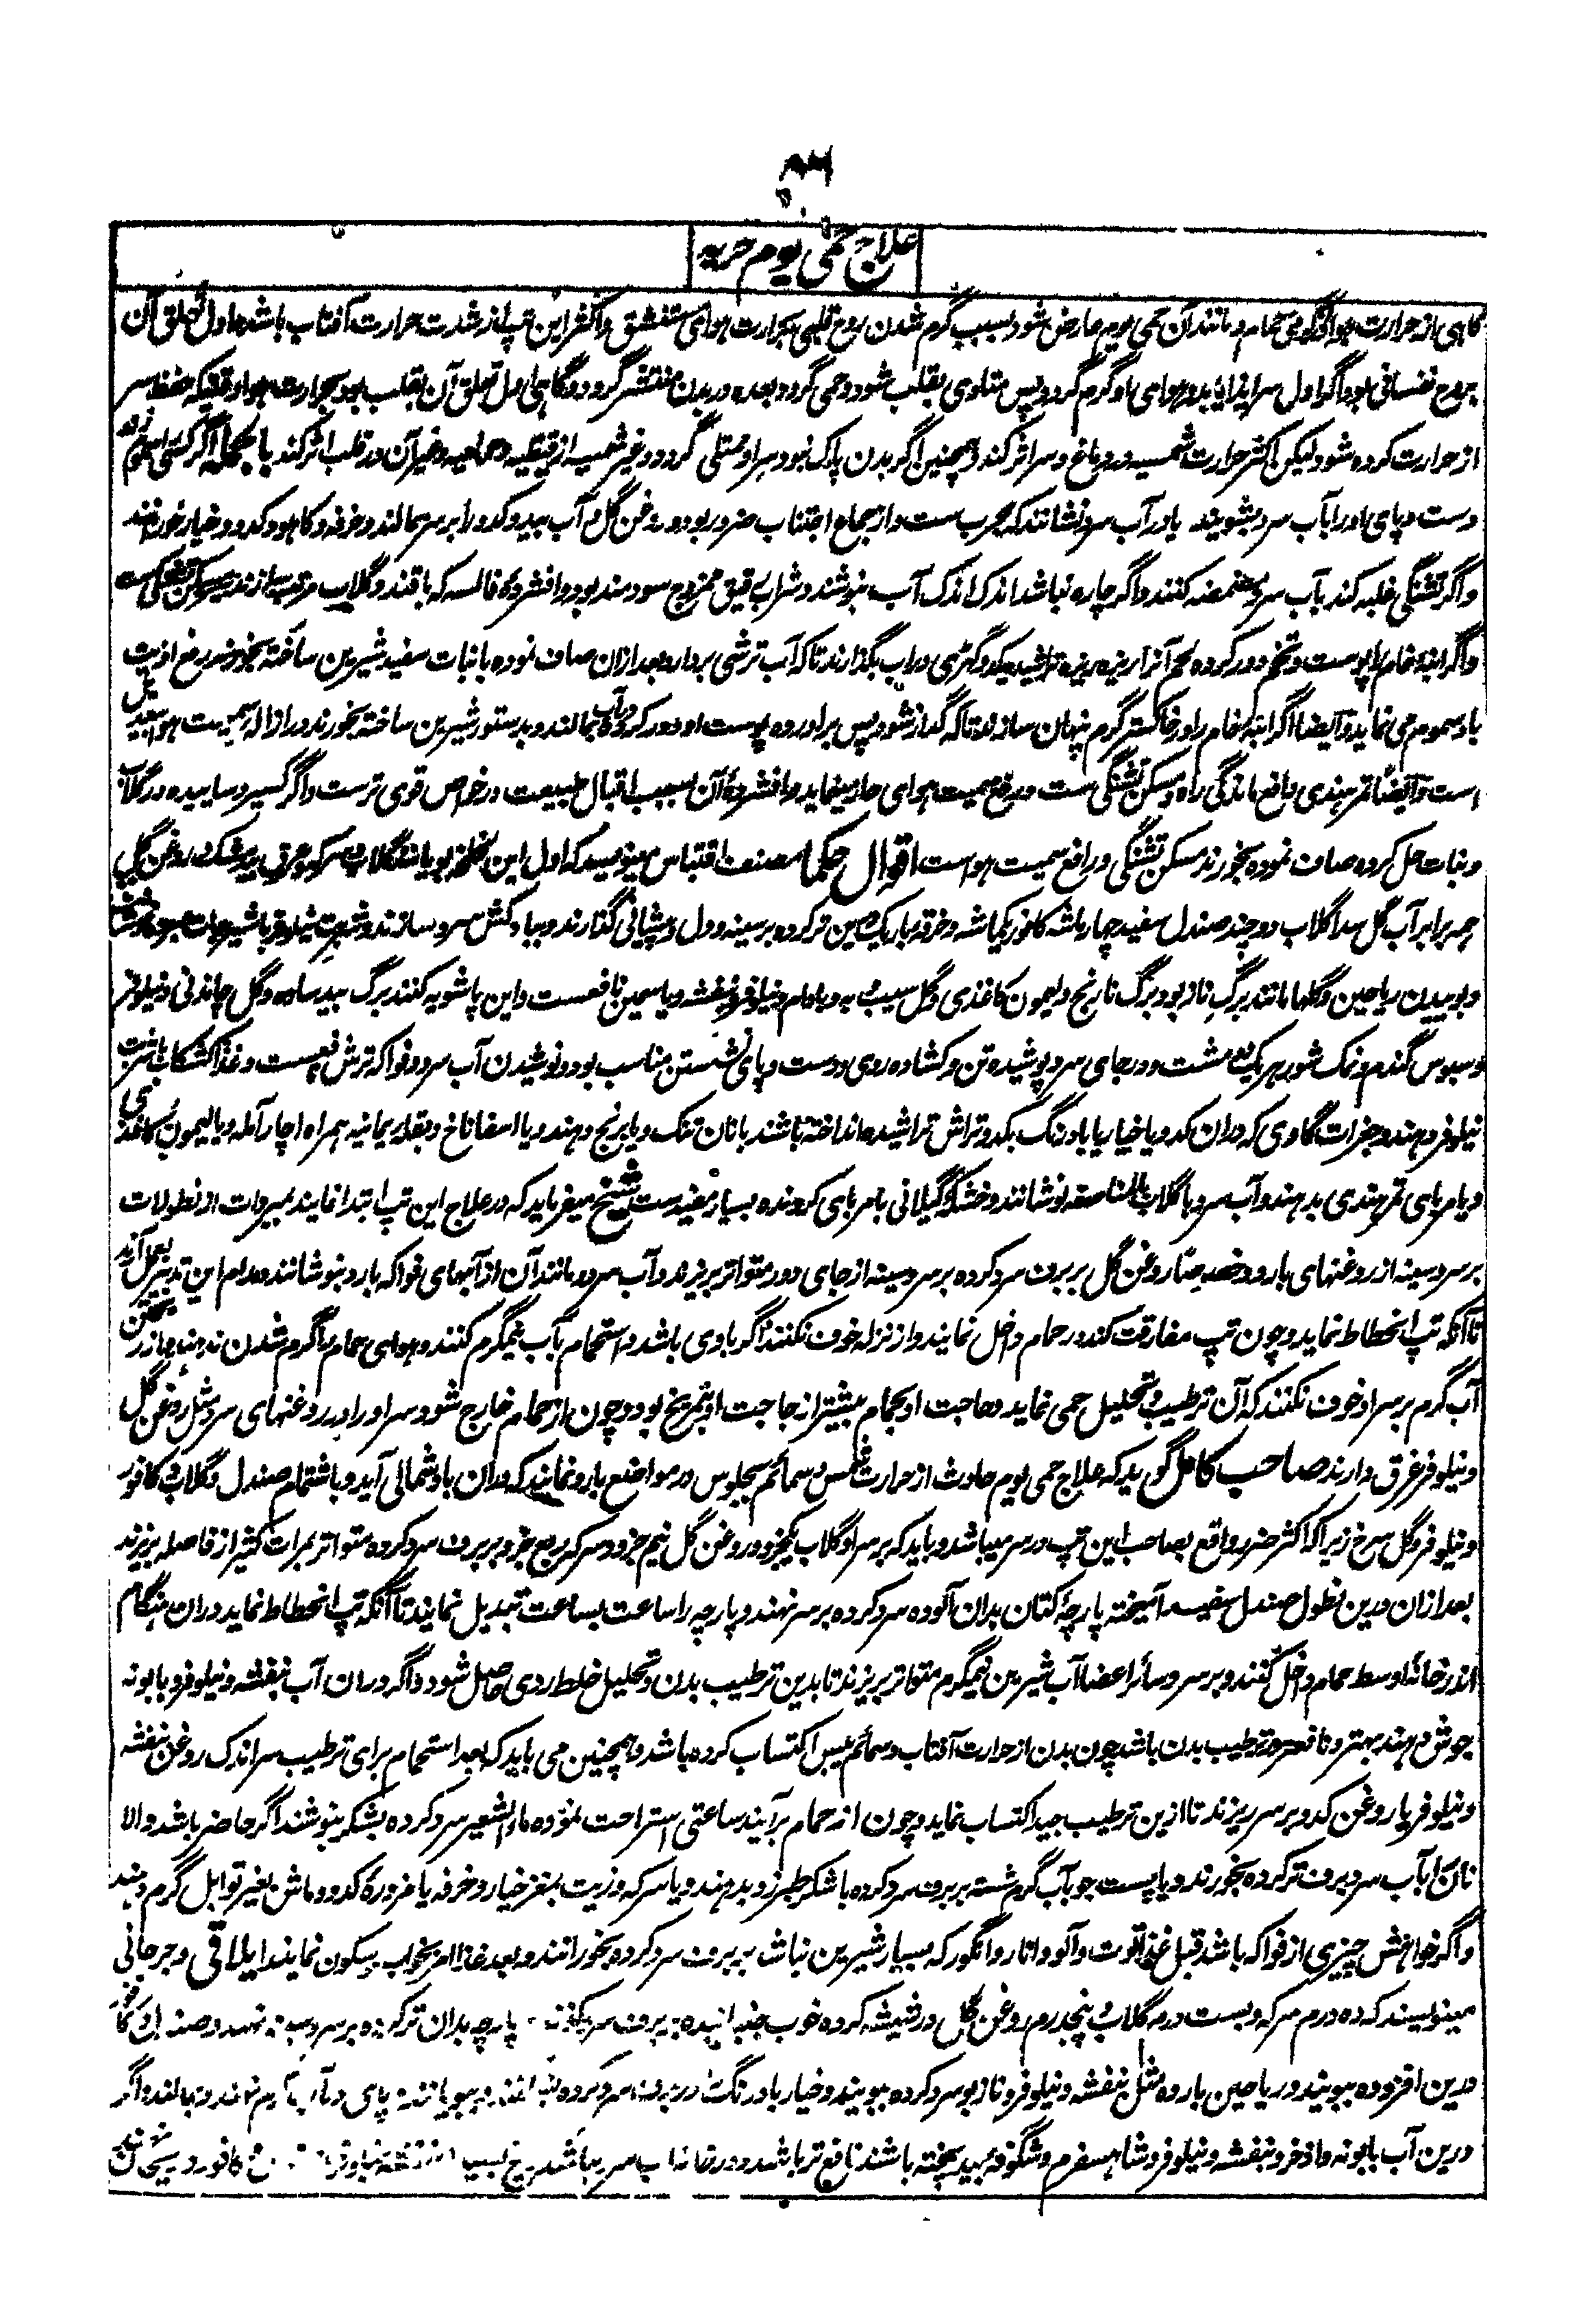 علاج حمی یوم حریه
گاهی از حرارت هوا و گرمی حمام و مانند آن حمی یومیه عارض شود بسبب گرم شدن روح قلبی بحرارت هوای مستنشق و اکثر این تپ از شدت حرارت آفتاب باشد و اول تعلق آن
بروح نفسانی بود و اگر اول سر ایذا یابد و هوای او گرم گردد پس متادی بقلب شود و حمی گردد و بعده در بدن منتشر گردد و گاهی اول تعلق آن بقلب بود بحرارت هوا وقتیکه حفظ سر
از حرارت کرده شود لیکن اکثر حرارت شمسیه در دماغ و سر اثر کند و همچنین اگر بدن پاک نبود سر او ممتلی گردد و غیر شمسیه از قیظیه و حمامیه و غیر آن در قلب اثر کند بالجمله اگر کسی را سموم زند
دست و پای او را بآب سرد بشویند یا در آب سرد نشانند که مجرب ست و از جماع اجتناب ضرور بود و روغن گل و آب بید و کدو را بر سر مالند و خرفه و کاهو و کدو و خیار خورانند
و اگر تشنگی غلبه کند بآب سرد مضمضه کنند و اگر چاره نباشد اندک اندک آب بنوشند و شراب رقیق ممزوج سودمند بود و افشرده فالسه که با قند و گلاب مرتب سازند مسکن تشنگی ست
و اگر انبه خام را پوست و تخم دور کرده لحم آنرا ریزه ریزه تراشیده یکدو گهڑی در آب بگذارند تا که آب ترشی بردارد بعد ازان صاف نموده با نبات سفید شیرین ساخته بخورند رفع اذیت
باد سموم می نماید و ایضا اگر انبه خام را در خاکستر گرم پنهان سازند تا که گداز شود پس برآورده پوست او دور کرده در آب بمالند و بدستور شیرین ساخته بخورند در ازاله سمیت هوا بیعدیل
است و ایضا تمر هندی دافع ماندگی راه و مسکن تشنگی ست و رفع سمیت هوای حار مینماید و افشرده آن بسبب اقبال طبیعت در خواص قوی ترست و اگر کسیرو ساییده در گلاب
و نبات حل کرده صاف نموده بخورند مسکن تشنگی و رافع سمیت هواست اقوال حکما مصنف اقتباس مینویسد که اول این لخلخه بویانند گلاب و سرکه و عرق بیدمشک و روغن گل
همه برابر آب گل سدا گلاب دو چند صندل سفید چهار ماشه کافور یکماشه و خرقه باریک درین تر کرده بر سینه و دل و پیشانی گذارند و بباد کش سرد سازند و شربت نیلوفر با شیره جات مبرده بنوشانند
و بوییدن ریاحین و گلها مانند برگ نازبو و برگ نارنج و لیمون کاغذی و گل سیب و به و بادام و نیلوفر و بنفشه و یاسمین نافعست و این پاشویه کنند برگ بید ساده و گل چاندنی و نیلوفر
و سبوس گندم و نمک شور هر یک مشت و در جای سرد پوشیده تن و کشاده روی و دست و پای نشستن مناسب بود و نوشیدن آب سرد و فواکه ترش و غذا کشکاب با شربت
نیلوفر دهند و جغرات گاوی که دران کدو یا خیار یا بادرنگ بکدو تراش تراشیده انداخته باشند با نان تنک و یا برنج دهند و یا اسفاناخ و بقله یمانیه همراه اچار آمله و یا لیمون کاغذی
و یا مربای تمر هندی بدهند و آب سرد با گلاب بالمناصفه نوشانند و خشکه گیلانی با مربای کرونده بسیار مفیدست شیخ میفرماید که در علاج این تپ ابتدا نمایند بمبردات از نطولات
بر سر و سینه از روغنهای بارد و خصوصا روغن گل ببرف سرد کرده بر سر و سینه از جای دور متواتر بریزند و آب سرد و مانند آن از آبهای فواکه بارد بنوشانند و مدام این تدبیر بعمل آرند
تا آنکه تپ انحطاط نماید و چون تپ مفارقت کند در حمام داخل نمایند و از نزله خوف نکنند اگر بادی باشد و استحمام بآب نیمگرم کنند و هوای حمام را گرم شدن ندهند و از ریختن
آب گرم بر سر او خوف نکنند که آن ترطیب و تحلیل حمی نماید و حاجت او بحمام بیشتر از حاجت او بتمریخ بود و چون از حمام خارج شود سر او را در روغنهای سرد مثل روغن گل
و نیلوفر غرق دارند صاحب کامل گوید که علاج حمی یوم حادث از حرارت شمس و سمائم بجلوس در مواضع بارد نمایند که دران باد شمالی آید و باشتمام صندل و گلاب و کافور
و نیلوفر و گل سرخ زیرا که اکثر ضرر واقع بصاحب این تپ در سر میباشد و باید که بر سر او گلاب یکجزو و روغن گل نیم جزو و سرکه ربع جزو ببرف سرد کرده متواتر بمرات کثیر از فاصله بریزند
بعد ازان درین نطول صندل سفید آمیخته پارچه کتان بدان آلوده سرد کرده بر سر نهند و پارچه را ساعت بساعت تبدیل نمایند تا آنکه تپ انحطاط نماید دران هنگام
اندر خانه اوسط حمام داخل کنند و بر سر و سائر اعضا آب شیرین نیمگرم متواتر بریزند تا بدین ترطیب بدن و تحلیل خلط ردی حاصل شود و اگر دران آب بنفشه و نیلوفر و بابونه
جوش دهند بهتر و نافعتر و ترطیب بدن باشد چون بدن از حرارت آفتاب و سمائم یبس اکتساب کرده باشد و همچنین می باید که بعد استحمام برای ترطیب سر اندک روغن بنفشه
و نیلوفر یا روغن کدو بر سر ریزند تا ازین ترطیب جید اکتساب نماید و چون از حمام برآیند ساعتی استراحت نموده ماءالشعیر سرد کرده بشکر بنوشند اگر حاضر باشد والا
نان را بآب سرد برف تر کرده بخورند و یا پست جو بآب گرم شسته ببرف سرد کرده با شکر طبرزد بدهند و یا سرکه و زیت بمغز خیار و خرفه یا مزوره کدو و ماش بغیر توابل گرم دهند
و اگر خواهش چیزی از فواکه باشد قبل غذا توت و آلو و انار و انگور که بسیار شیرین نباشد ببرف سرد کرده بخورانند و بعد غذا امر بخواب و سکون نمایند ایلاقی و جرجانی
مینویسند که ده درم سرکه و بست درم گلاب و پنجدرم روغن گل در شیشه کرده خوب جنبانیده ببرف سرد کنند پارچه بدان تر کرده بر سر و سینه نهند و صندل و کافور
درین افزوده ببویند و ریاحین بارده مثل بنفشه و نیلوفر و نازبو سرد کرده ببویند و خیار بادرنگ در برف سرد کرده ببویانند پای در آب گرم نهند و بمالند و اگر
درین آب بابونه و اذخر و بنفشه و نیلوفر و شاهسفرم و شگوفه بید پخته باشند نافع تر باشد و در خانه سرد باشد